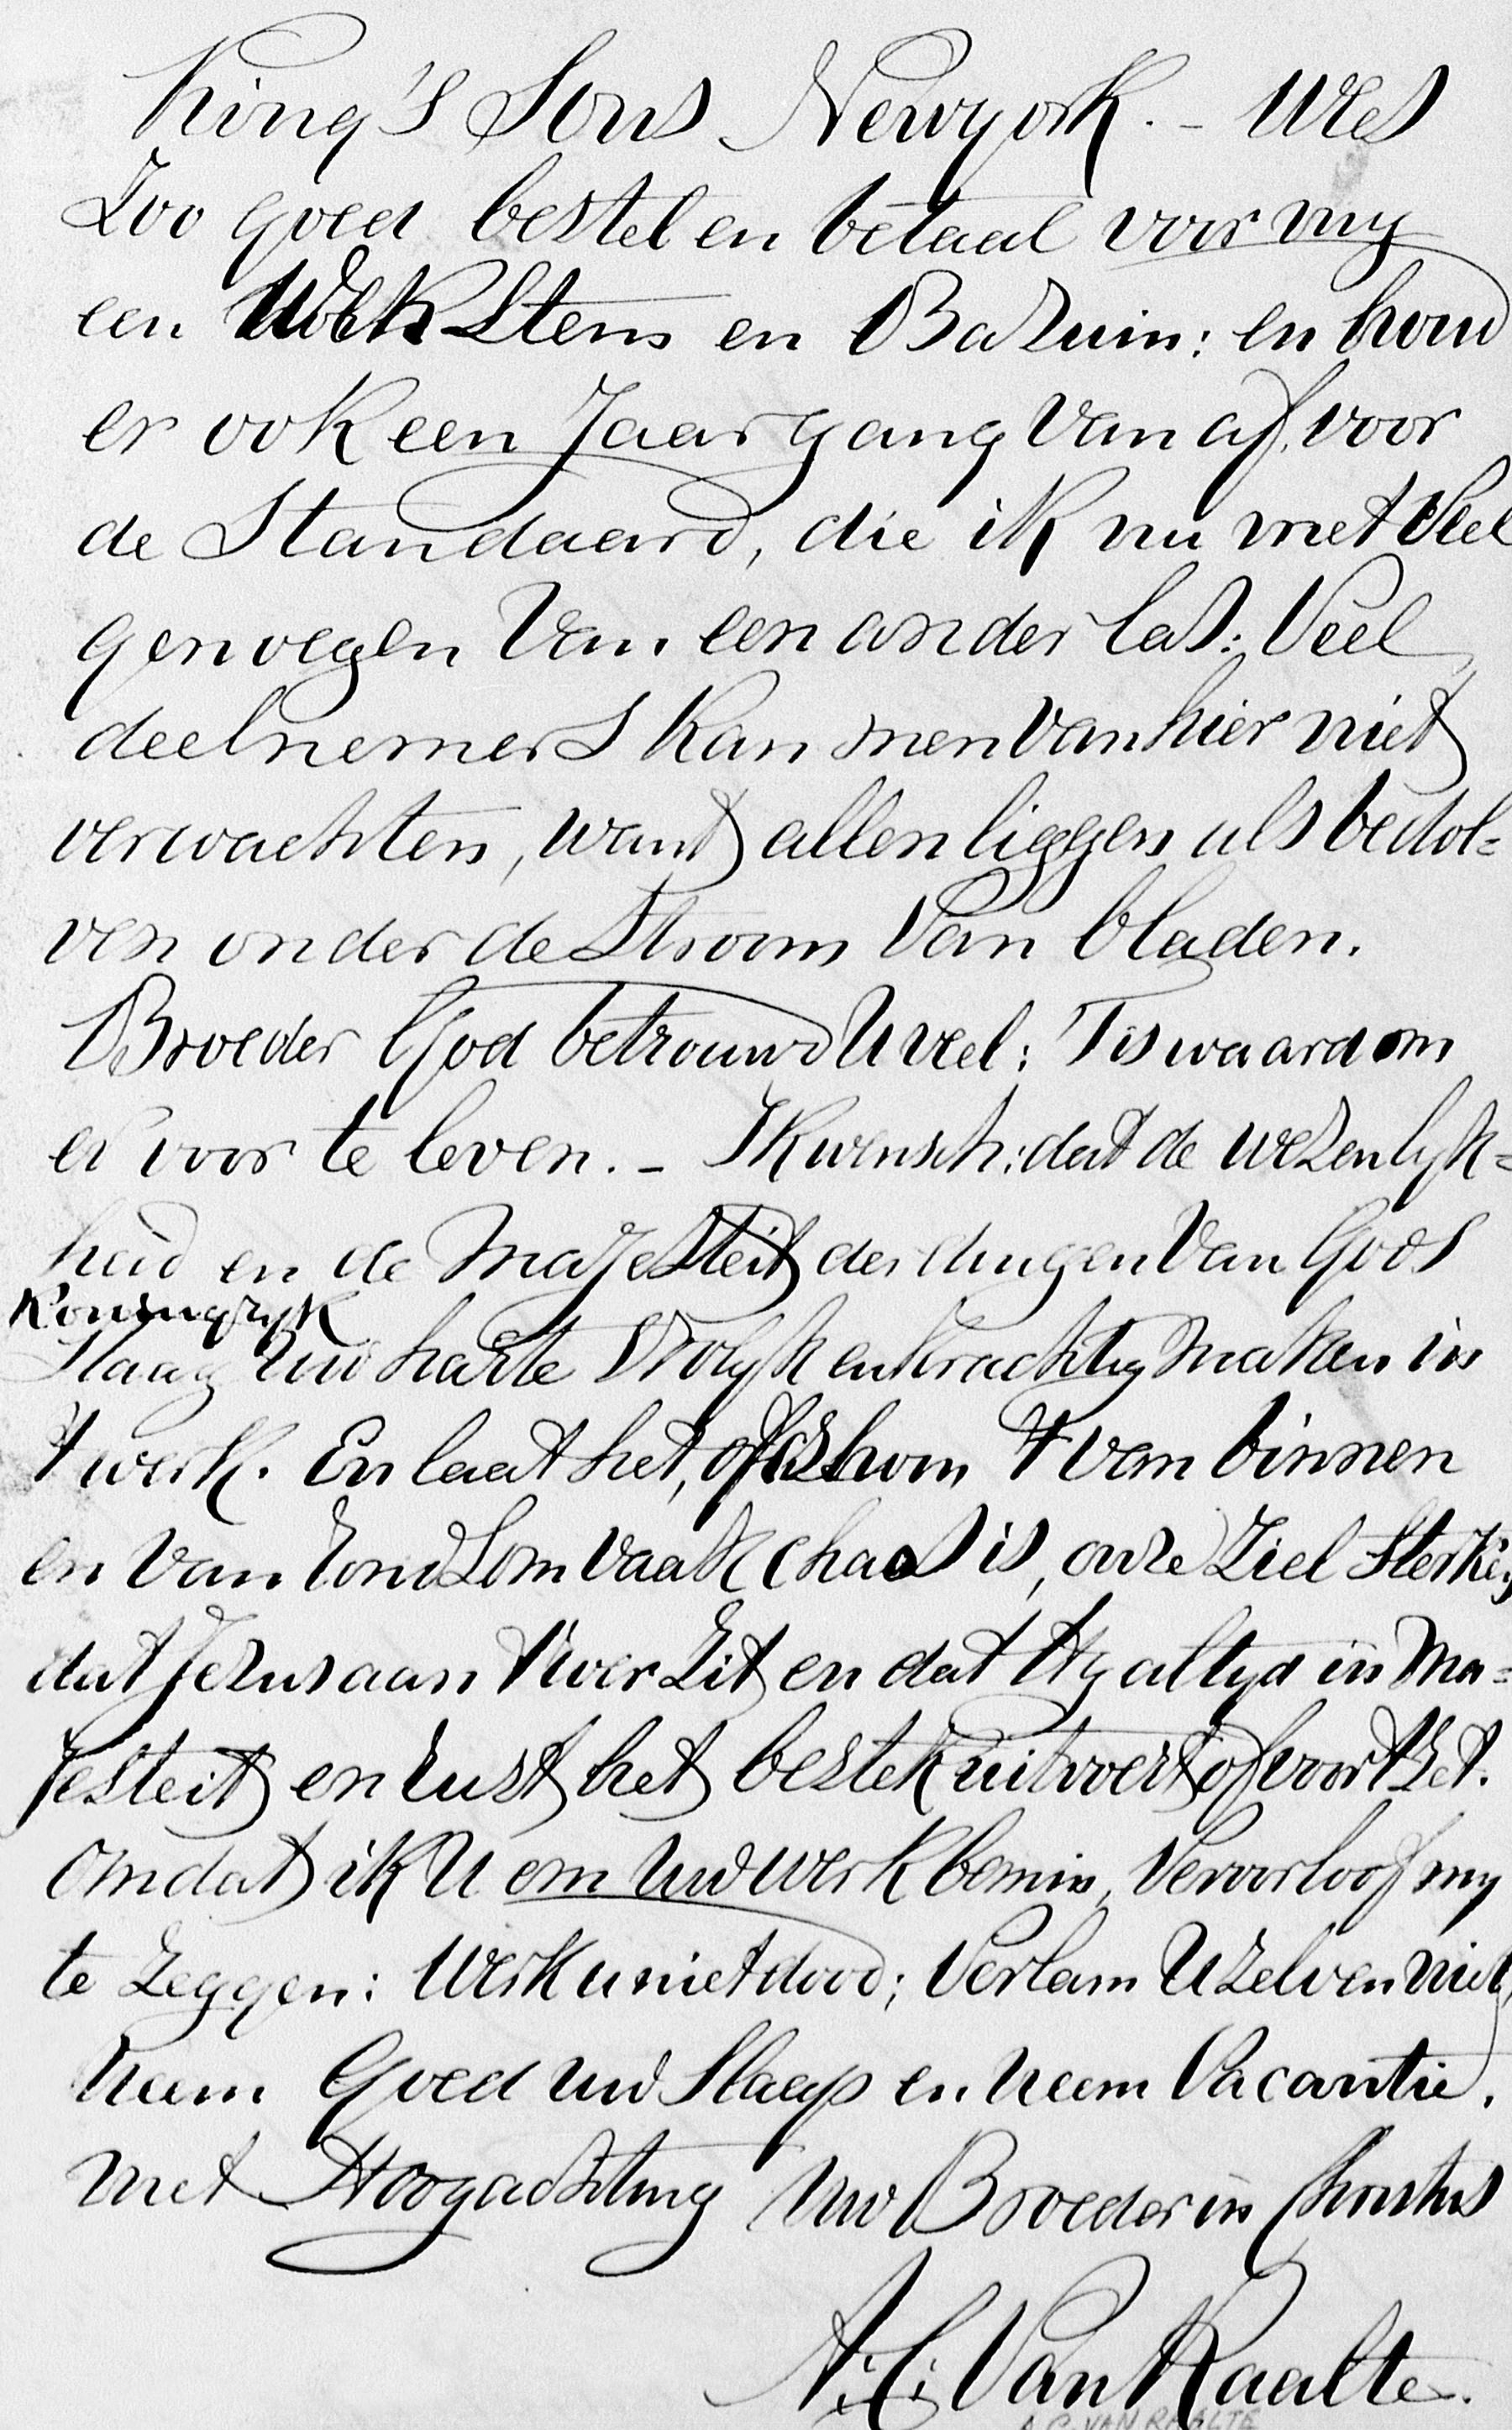 King's Sons Newyork. - Wees
Zoo goed bestel en betaal voor my
een Wekstem en Bazuin: en houd
er ook een Jaargang van af voor
de Standaard, die ik nu met veel
genoegen van een ander las: Veel
deelnemers kan men van hier niet
verwachten, want allen liggen als bedol=
ven onder de Stroom van bladen.
Broeder God betrouwd U veel: Tis waard om
er voor te leven. - Ik wensch: dat de wezenlyk=
heid en de Majesteit der dingen van Gods
Koningryk
Staag uw harte Vrolyk en krachtig maken in
t werk. En laat het, ofschoon t van binnen
en van rondsom vaak chaos is, onze Ziel Sterken,
dat Jezus aan t roer Zit en dat Hy altyd in Ma=
jesteit en rust het bestek uitvoert of voortzet.
Omdat ik U om uw werk bemin, Veroorloof my
te Zeggen: Werk u niet dood; Verlam Uzelven niet,
neem Goed uw Slaap en neem Vacantie.
Met Hoogachting Uw Broeder in Christus
A. C. Van Raalte.
A.C. VAN RAALTE